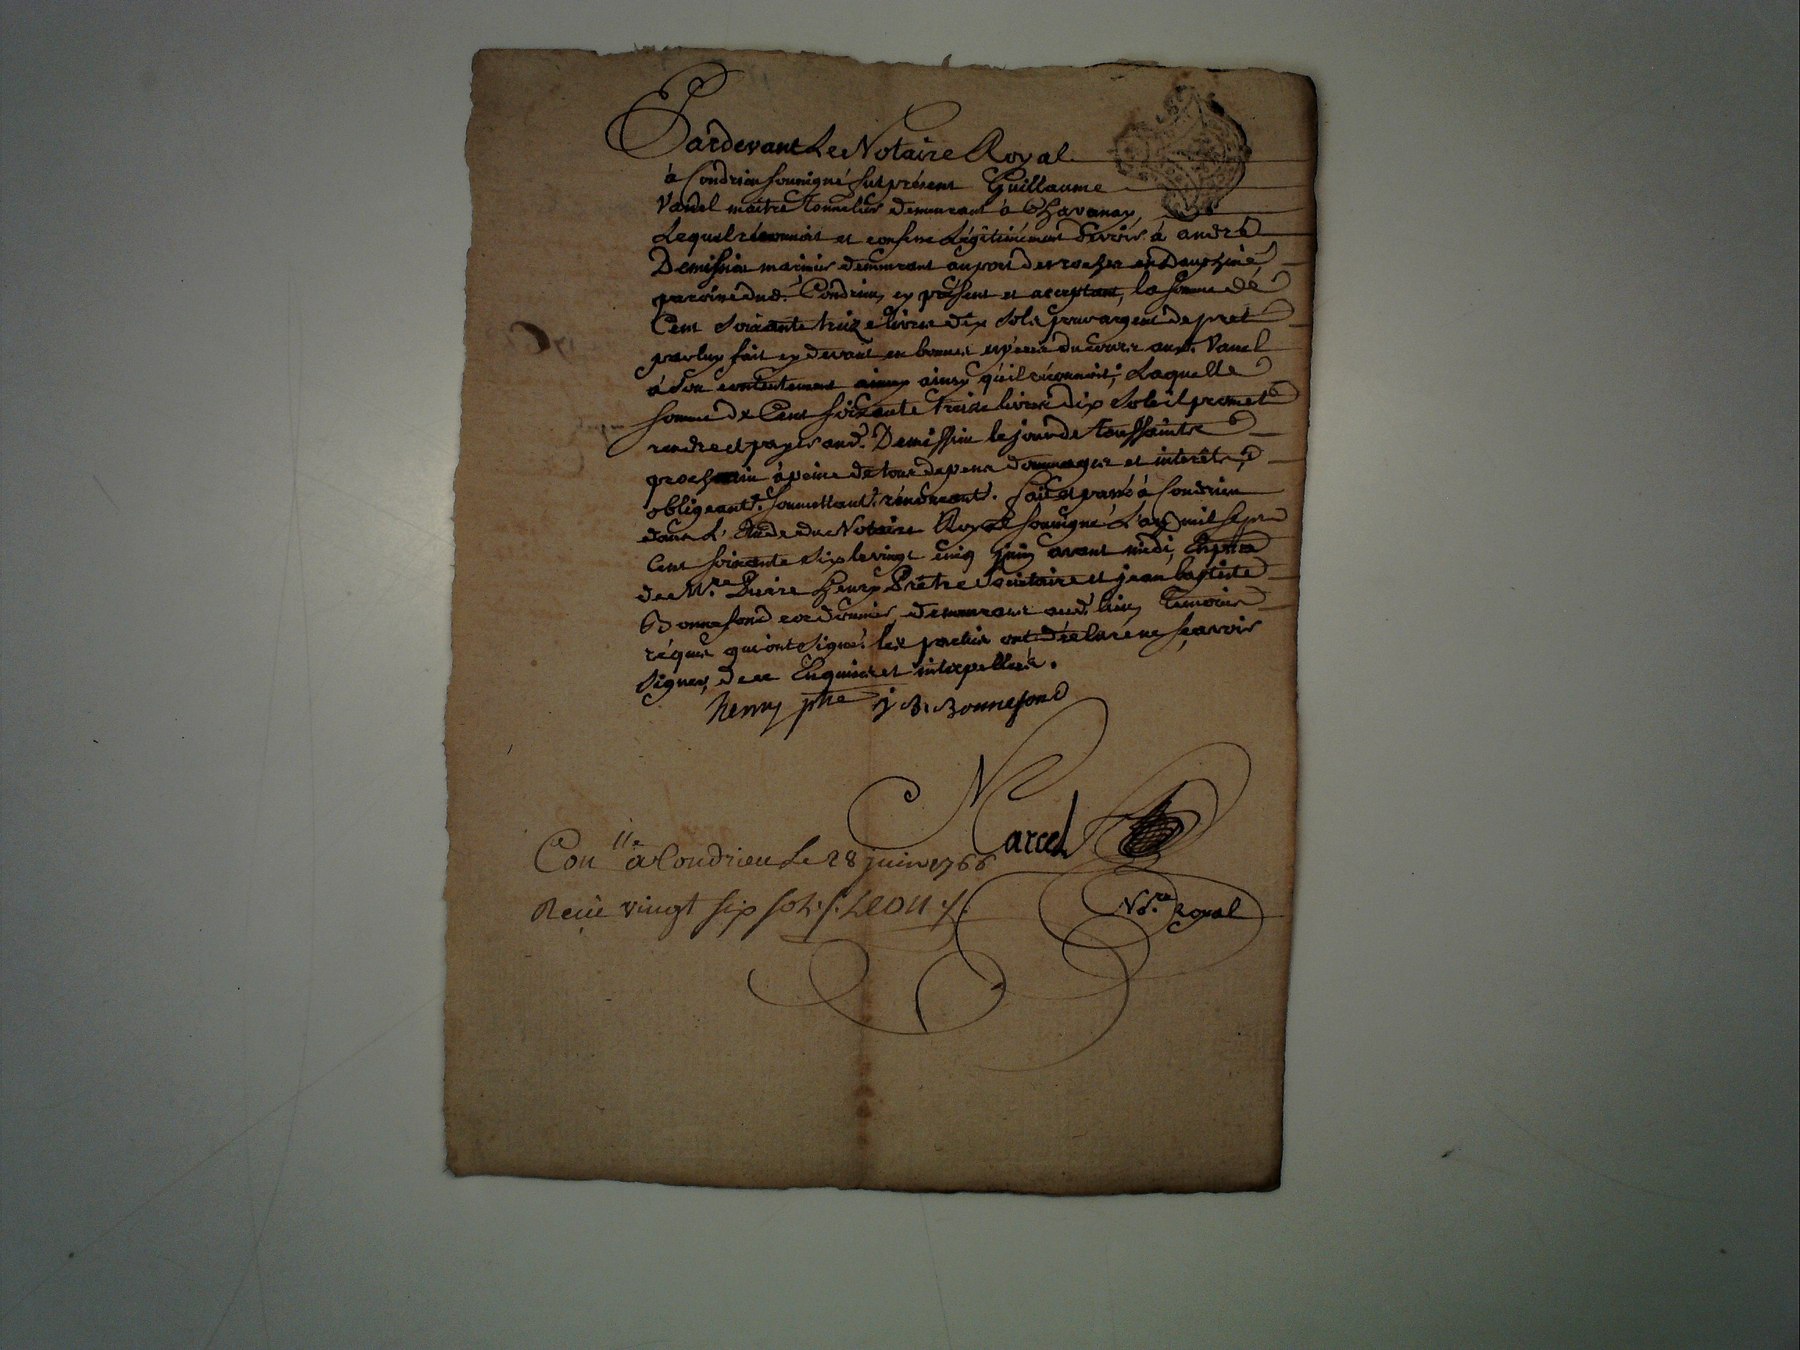 Pardevant Le Notaire Royal
à Condrieu soussigné fut présent Guillaume
Vanel maitre tonnelier demeurant à Chavanay,
Lequel réconnoit et confesse Légitimement devoir à andré
Demission marinier demeurant au port des roches en Dauphiné
paroisse dud. Condrieu, cy présent et acceptant, la somme de
Cent soixante treize livres dix sols pour argent de pret
par luy fait cy devant en bonnes espèces du cours aud. Vanel
à son contentement ainsy qu'il réconnoit; Laquelle
somme de Cent soixante treize livres dix sols il promet
rendre et payer aud. Demission le jour de toussaints
prochain à peine de tous depens dommages et intérêts,
obligeant. soumettant. rénonceant. fait et passé à Condrieu
dans L'Etude du Notaire Royal soussigné L'an mil sept
Cent soixante six le vingt cinq juin avant midi, En pnce
de Mre. Pierre henry Prêtre Sociétaire et jean baptiste
Bonnefond cordonnier, demeurant aud. lieu, temoins
réquis qui ont signé. les parties ont déclaré ne sçavoir
signer, de ce Enquises et intérpellées.
henry ptre j B. Bonnefond
Marcel
Con.lle à Condrieu Le 28 juin 1766
Nore. Royal
Reçu vingt six sols. Leon